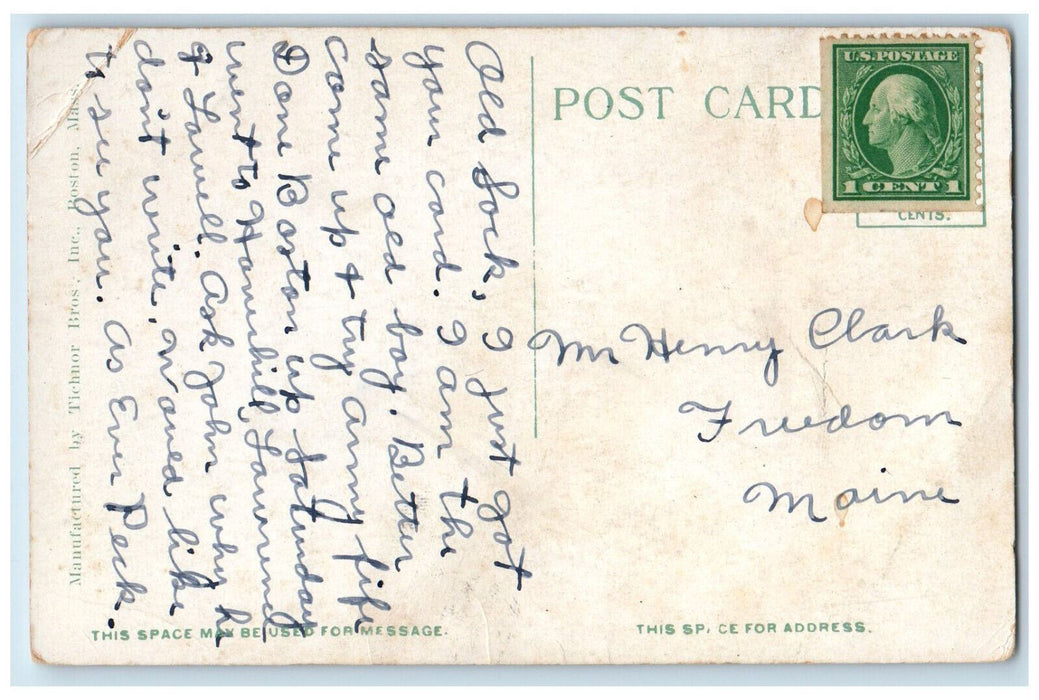 Old Sock, I just got
your card. I am the
same old boy. Better
come up & try army life
Done Boston up Saturday
went to Haverhill, Lawrence
& Lowell. Ask John why he
don't write, would like
to see you. As Ever Peck.
Manufactured by Tichnor Bros., Inc., Boston, Mass.
THIS SPACE MAY BE USED FOR MESSAGE.
POST CARD
U.S. POSTAGE
1 CENT 1
CENTS.
Mr Henry Clark
Freedom
Maine
THIS SPACE FOR ADDRESS.